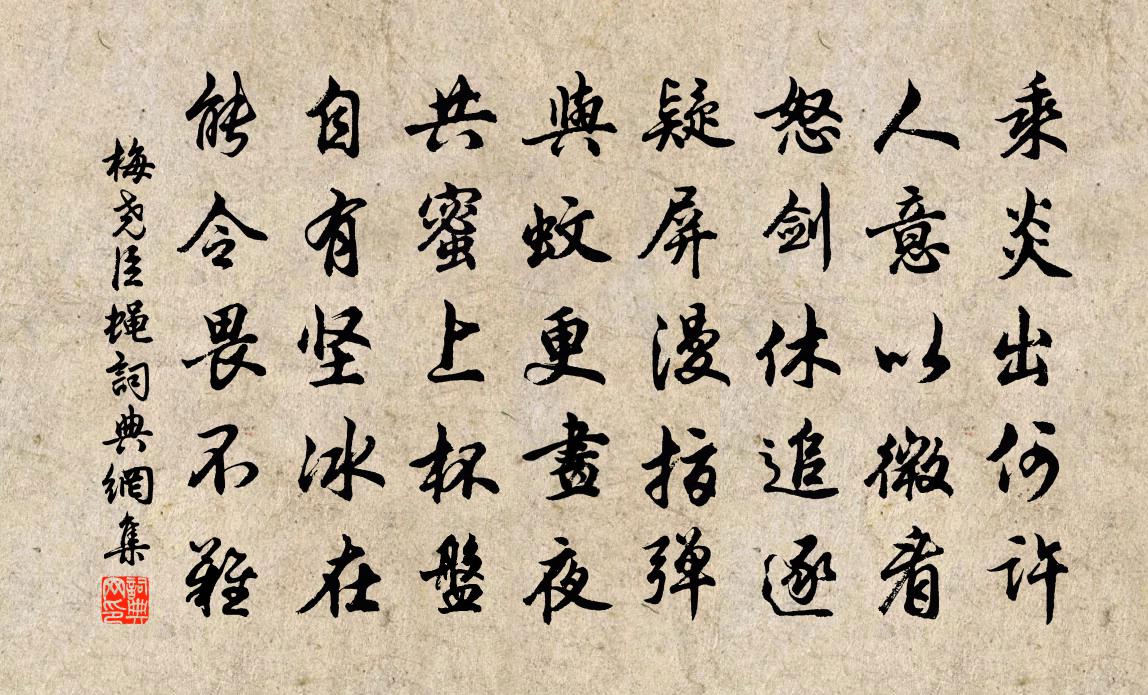 乘炎出何许
人意以微看
怒剑休追逐
疑屏漫指弹
與蚊更晝夜
共蜜上杯盤
自有坚冰在
能令畏不難
梅尧臣蝇詞典網集
詞典网印